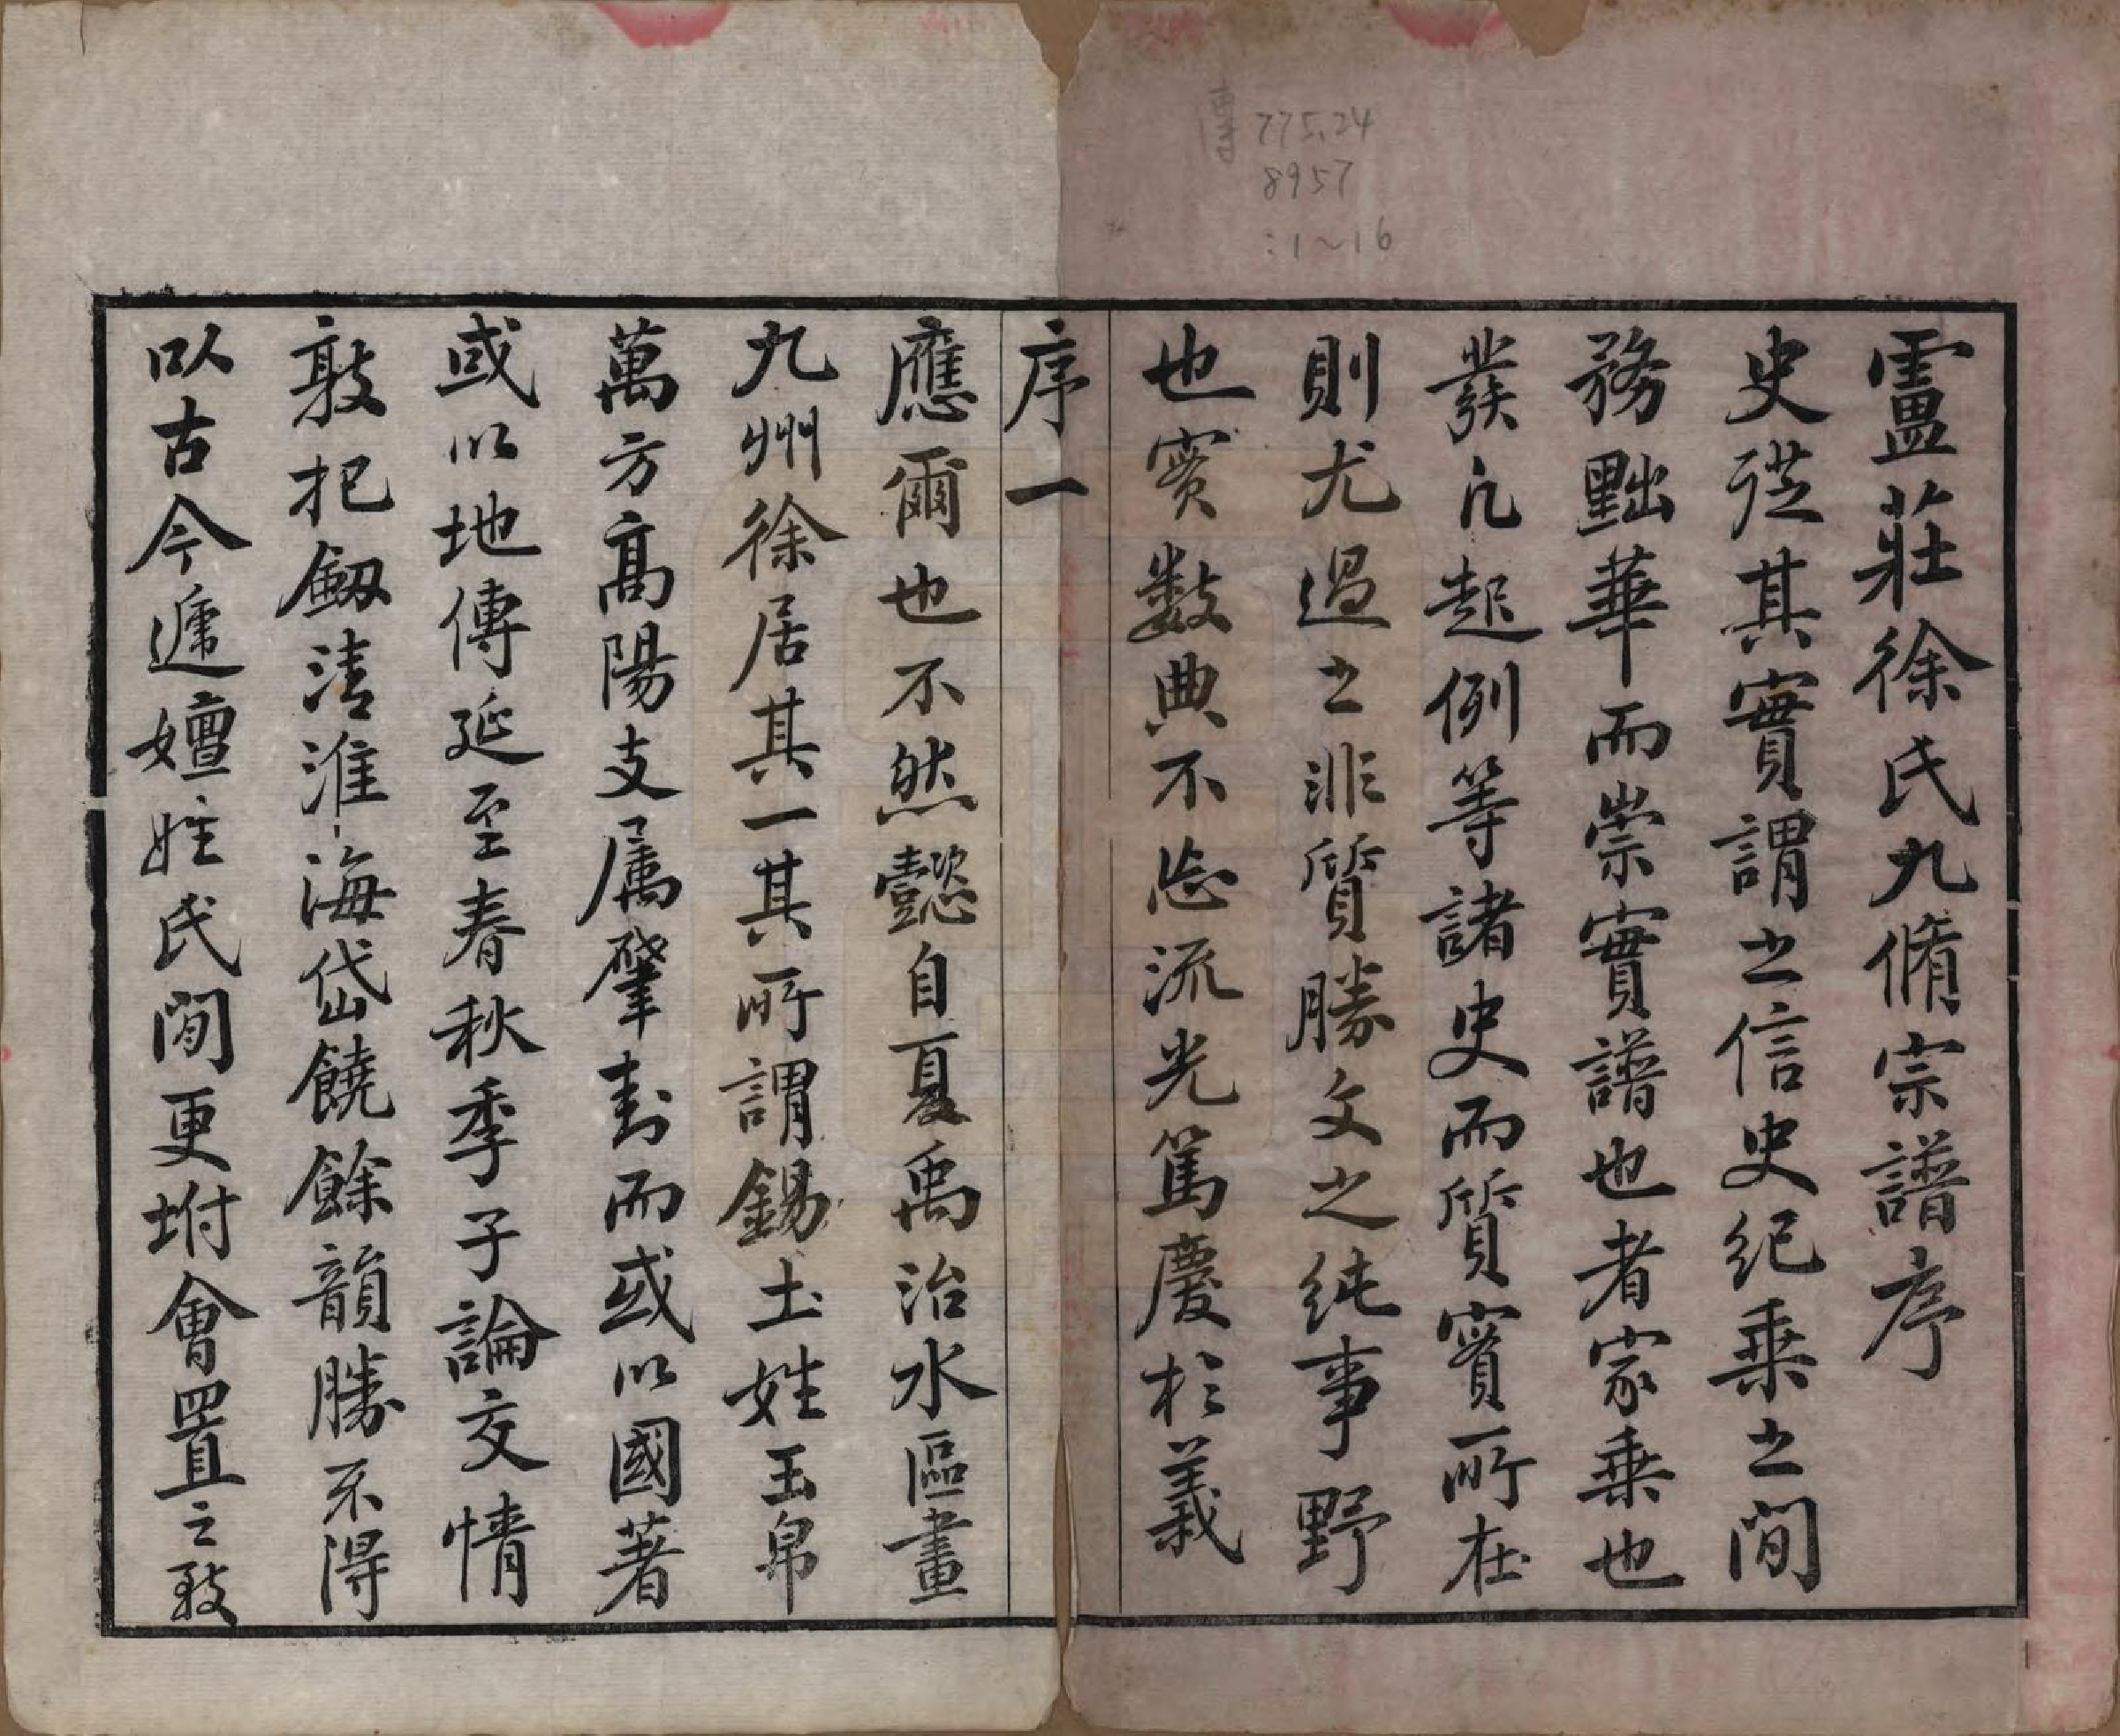 傳 775.24
8957
:1~16
靈莊徐氏九脩宗譜序
史従其實謂之信史紀乗之間
務黜華而崇實譜也者家乗也
發凡起例等諸史而質實所在
則尤過之非質勝文之純事野
也實数典不忘流光篤慶於義
序一
應爾也不然懿自夏禹治水區畫
九州徐居其一其所謂錫土姓玉帛
萬方高陽支属肇封而或以國著
或以地傳延至春秋季子論交情
敦把劔清淮海岱饒餘韻勝不得
以古今遞嬗姓氏間更坿會置之致